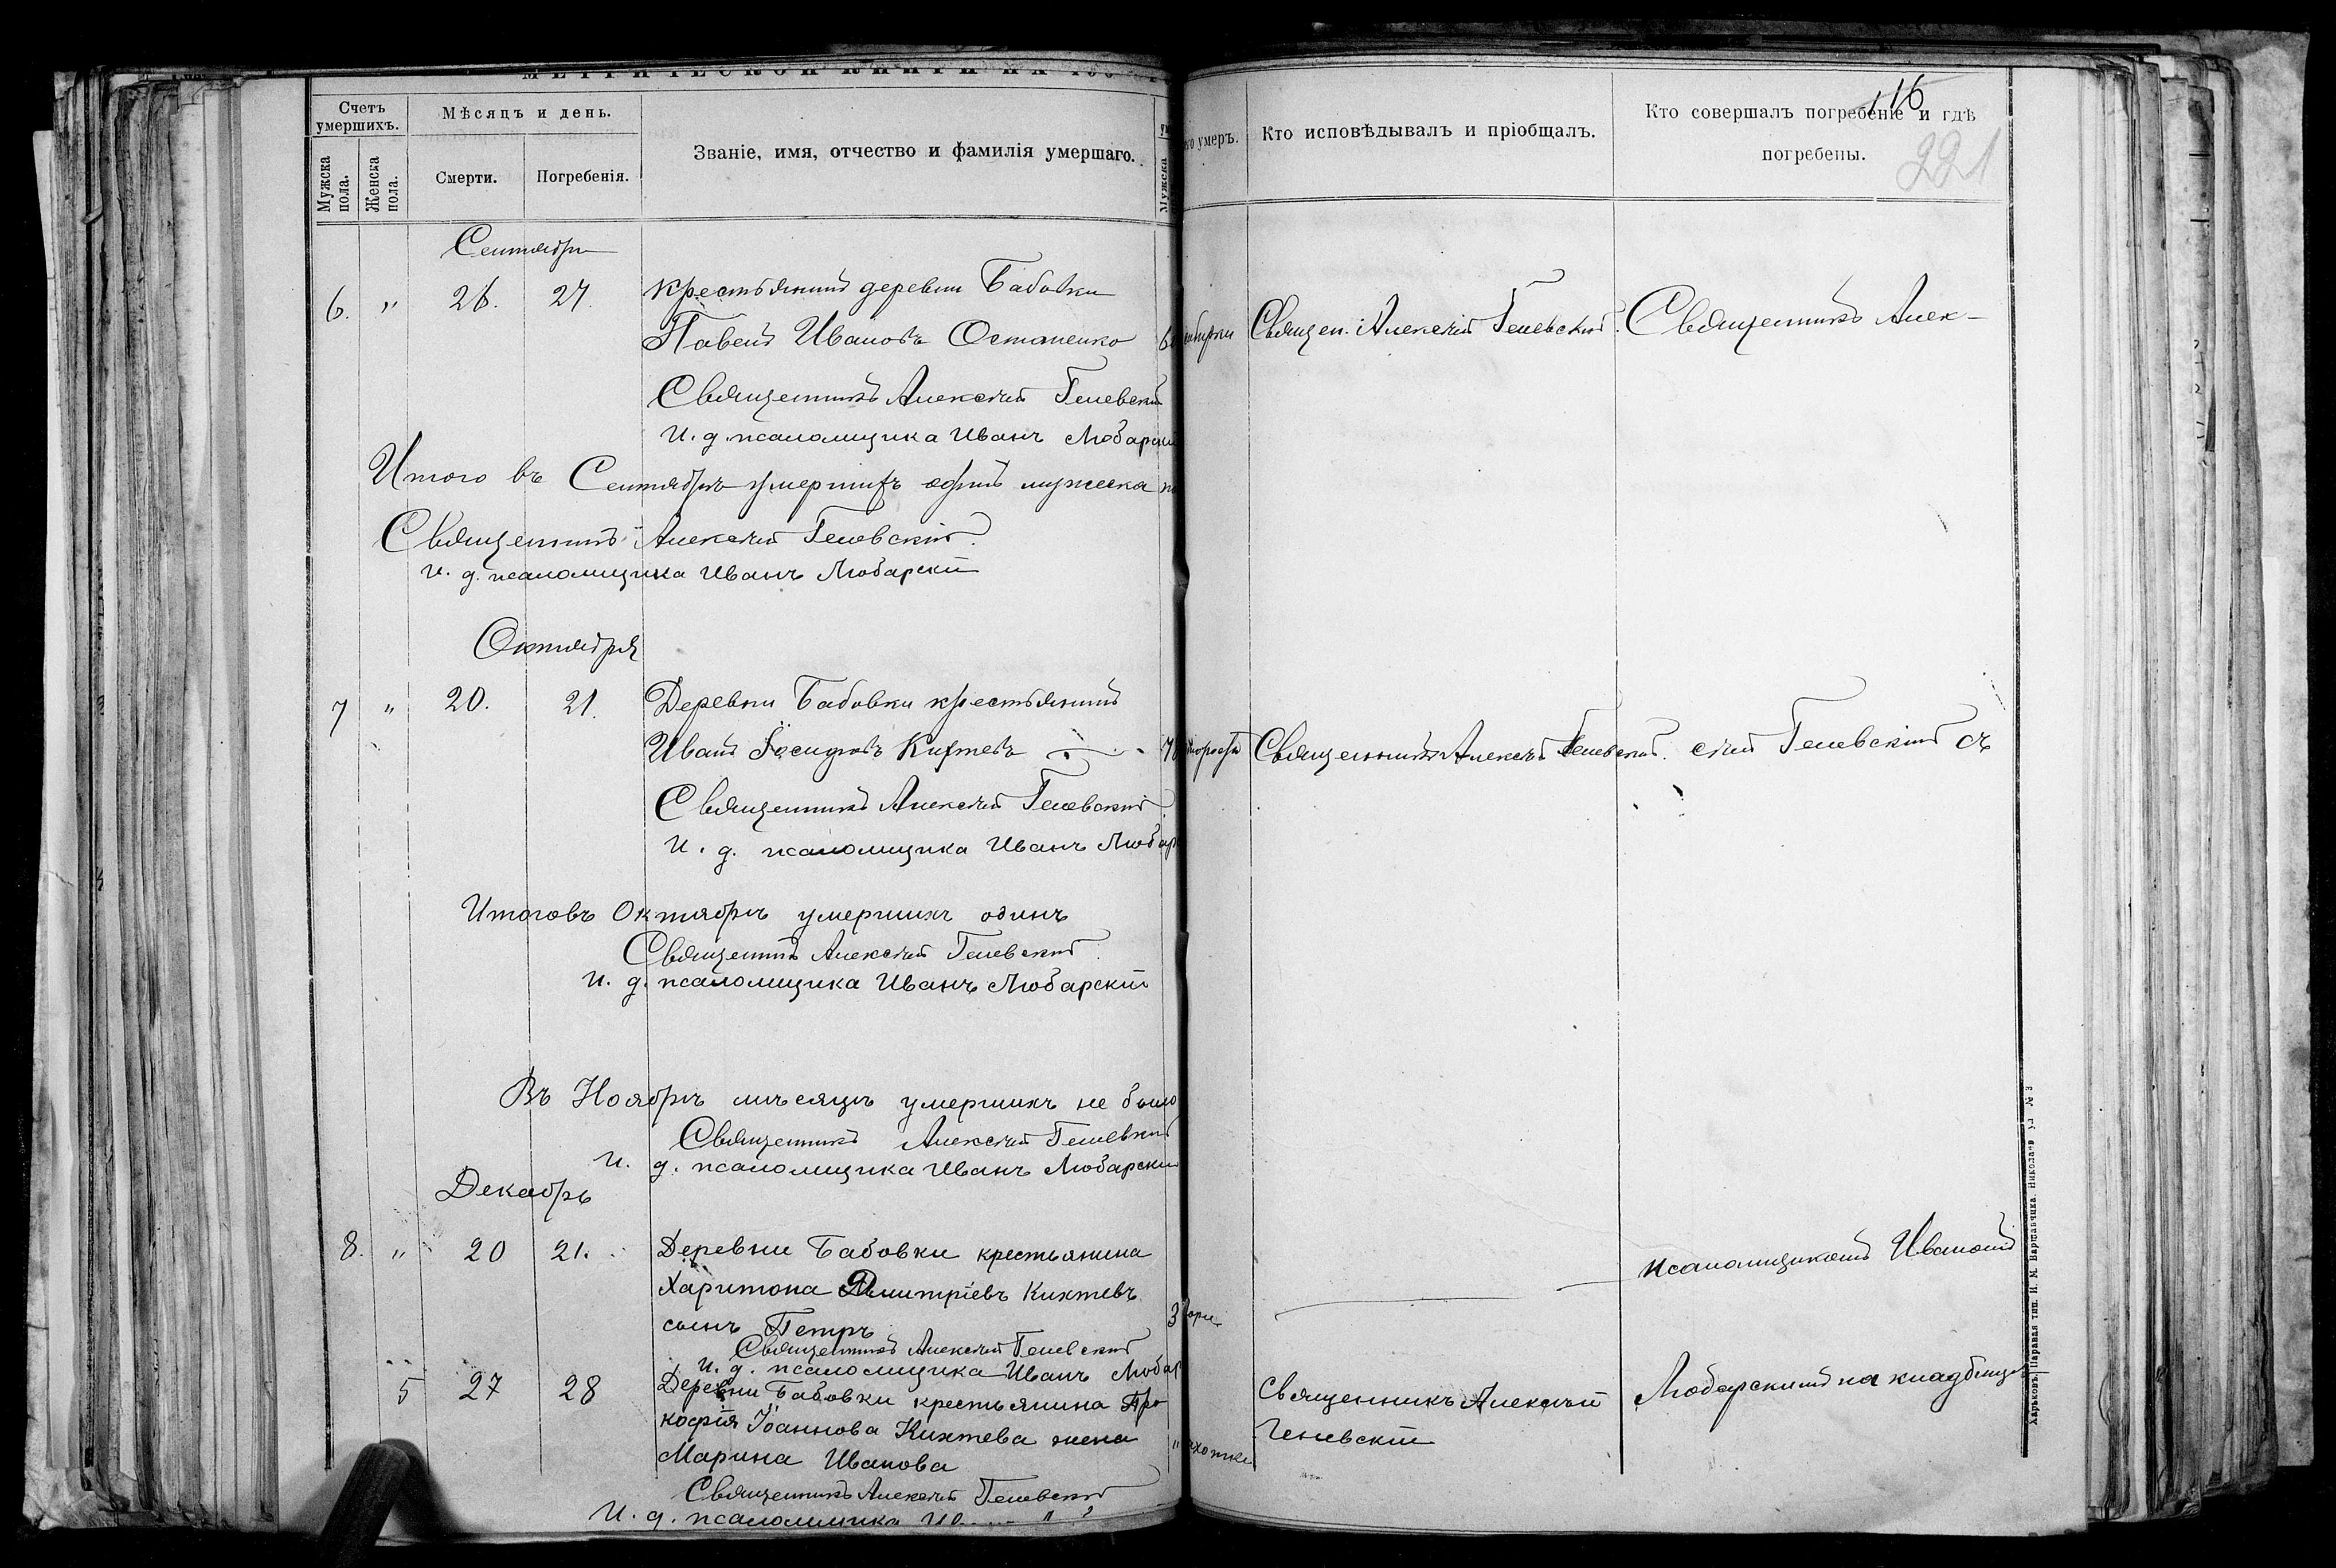 Счетъ умершихъ.
Мѣсяцъ и день.
Мужска пола.
Женска пола.
Смерти.
Погребенія.
Званіе, имя, отчество и фамилія умершаго.
Мужска
умеръ.
Кто исповѣдывалъ и пріобщалъ.
Кто совершалъ погребеніе и гдѣ
погребены.
116
221
Сентября
6. " 26. 27. Крестьянинъ деревни Бабовки
Павелъ Ивановъ Остапенко
Священ. Алексѣй Геневскій. Священникъ Алек-
Священникъ Алексѣй Геневскій
И. д. псаломщика Иванъ Любарскій
Итого въ Сентябрѣ умершихъ одинъ мужеска
Священникъ Алексѣй Геневскій.
И. д. псаломщика Иванъ Любарскій
Октября
7 " 20. 21. Деревни Бабовки крестьянинъ
Иванъ Іосифовъ Кихтевъ
Священникъ Алексѣй Геневскій. сѣй Геневскій съ
Священникъ Алексѣй Геневскій
И. д. псаломщика Иванъ Любар
Итого въ Октябрѣ умершихъ одинъ
Священникъ Алексѣй Геневскій.
И. д. псаломщика Иванъ Любарскій
Въ Ноябрѣ мѣсяцѣ умершихъ не было
Священникъ Алексѣй Геневскій
И. д. псаломщика Иванъ Любарскій
Декабрь
8. " 20 21. Деревни Бабовки крестьянина
Харитона Дмитріевъ Кихтевъ
сынъ Петръ 3
псаломщикомъ Иваномъ
Священникъ Алексѣй Геневскій
И. д. псаломщика Иванъ Любар
5 27 28 Деревни Бабовки крестьянина Про
кофія Іоаннова Кихтева жена
Марина Иванова
Священникъ Алексѣй
Геневскій
Любарскимъ на кладбищѣ
Священникъ Алексѣй Геневскій
И. д. псаломщика
Харьковъ. Паравая тип. И. М. Варшавчика. Николаев ул № 3